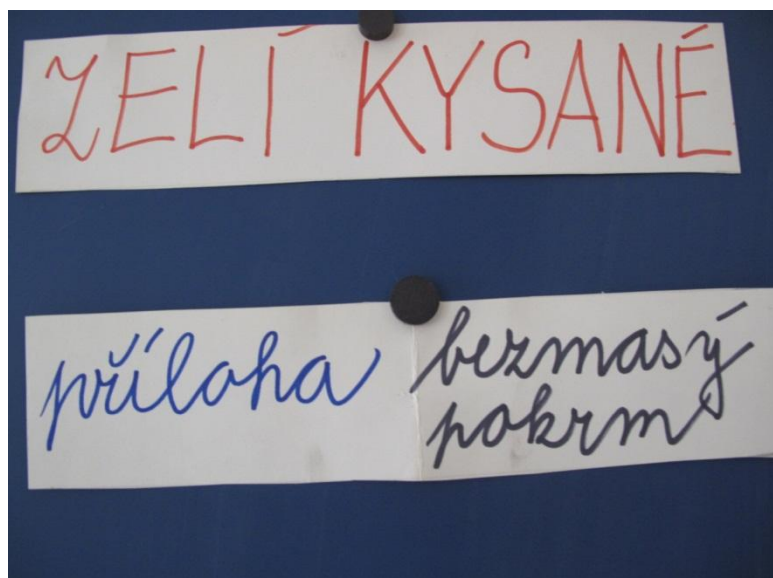 ZELÍ KYSANÉ
příloha
bezmasý
pokrm